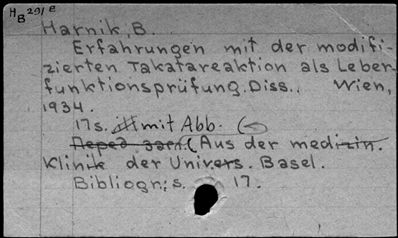 HB 291 e
Harnik, B.
Erfahrungen mit der modifi-
zierten Takatareaktion als Leber-
funktionsprüfung. Diss.. Wien,
1934.
17s. mit Abb. (
Перед загл. (Aus der medizin.
Klinik der Univers. Basel.
Bibliogr.: s. 17.